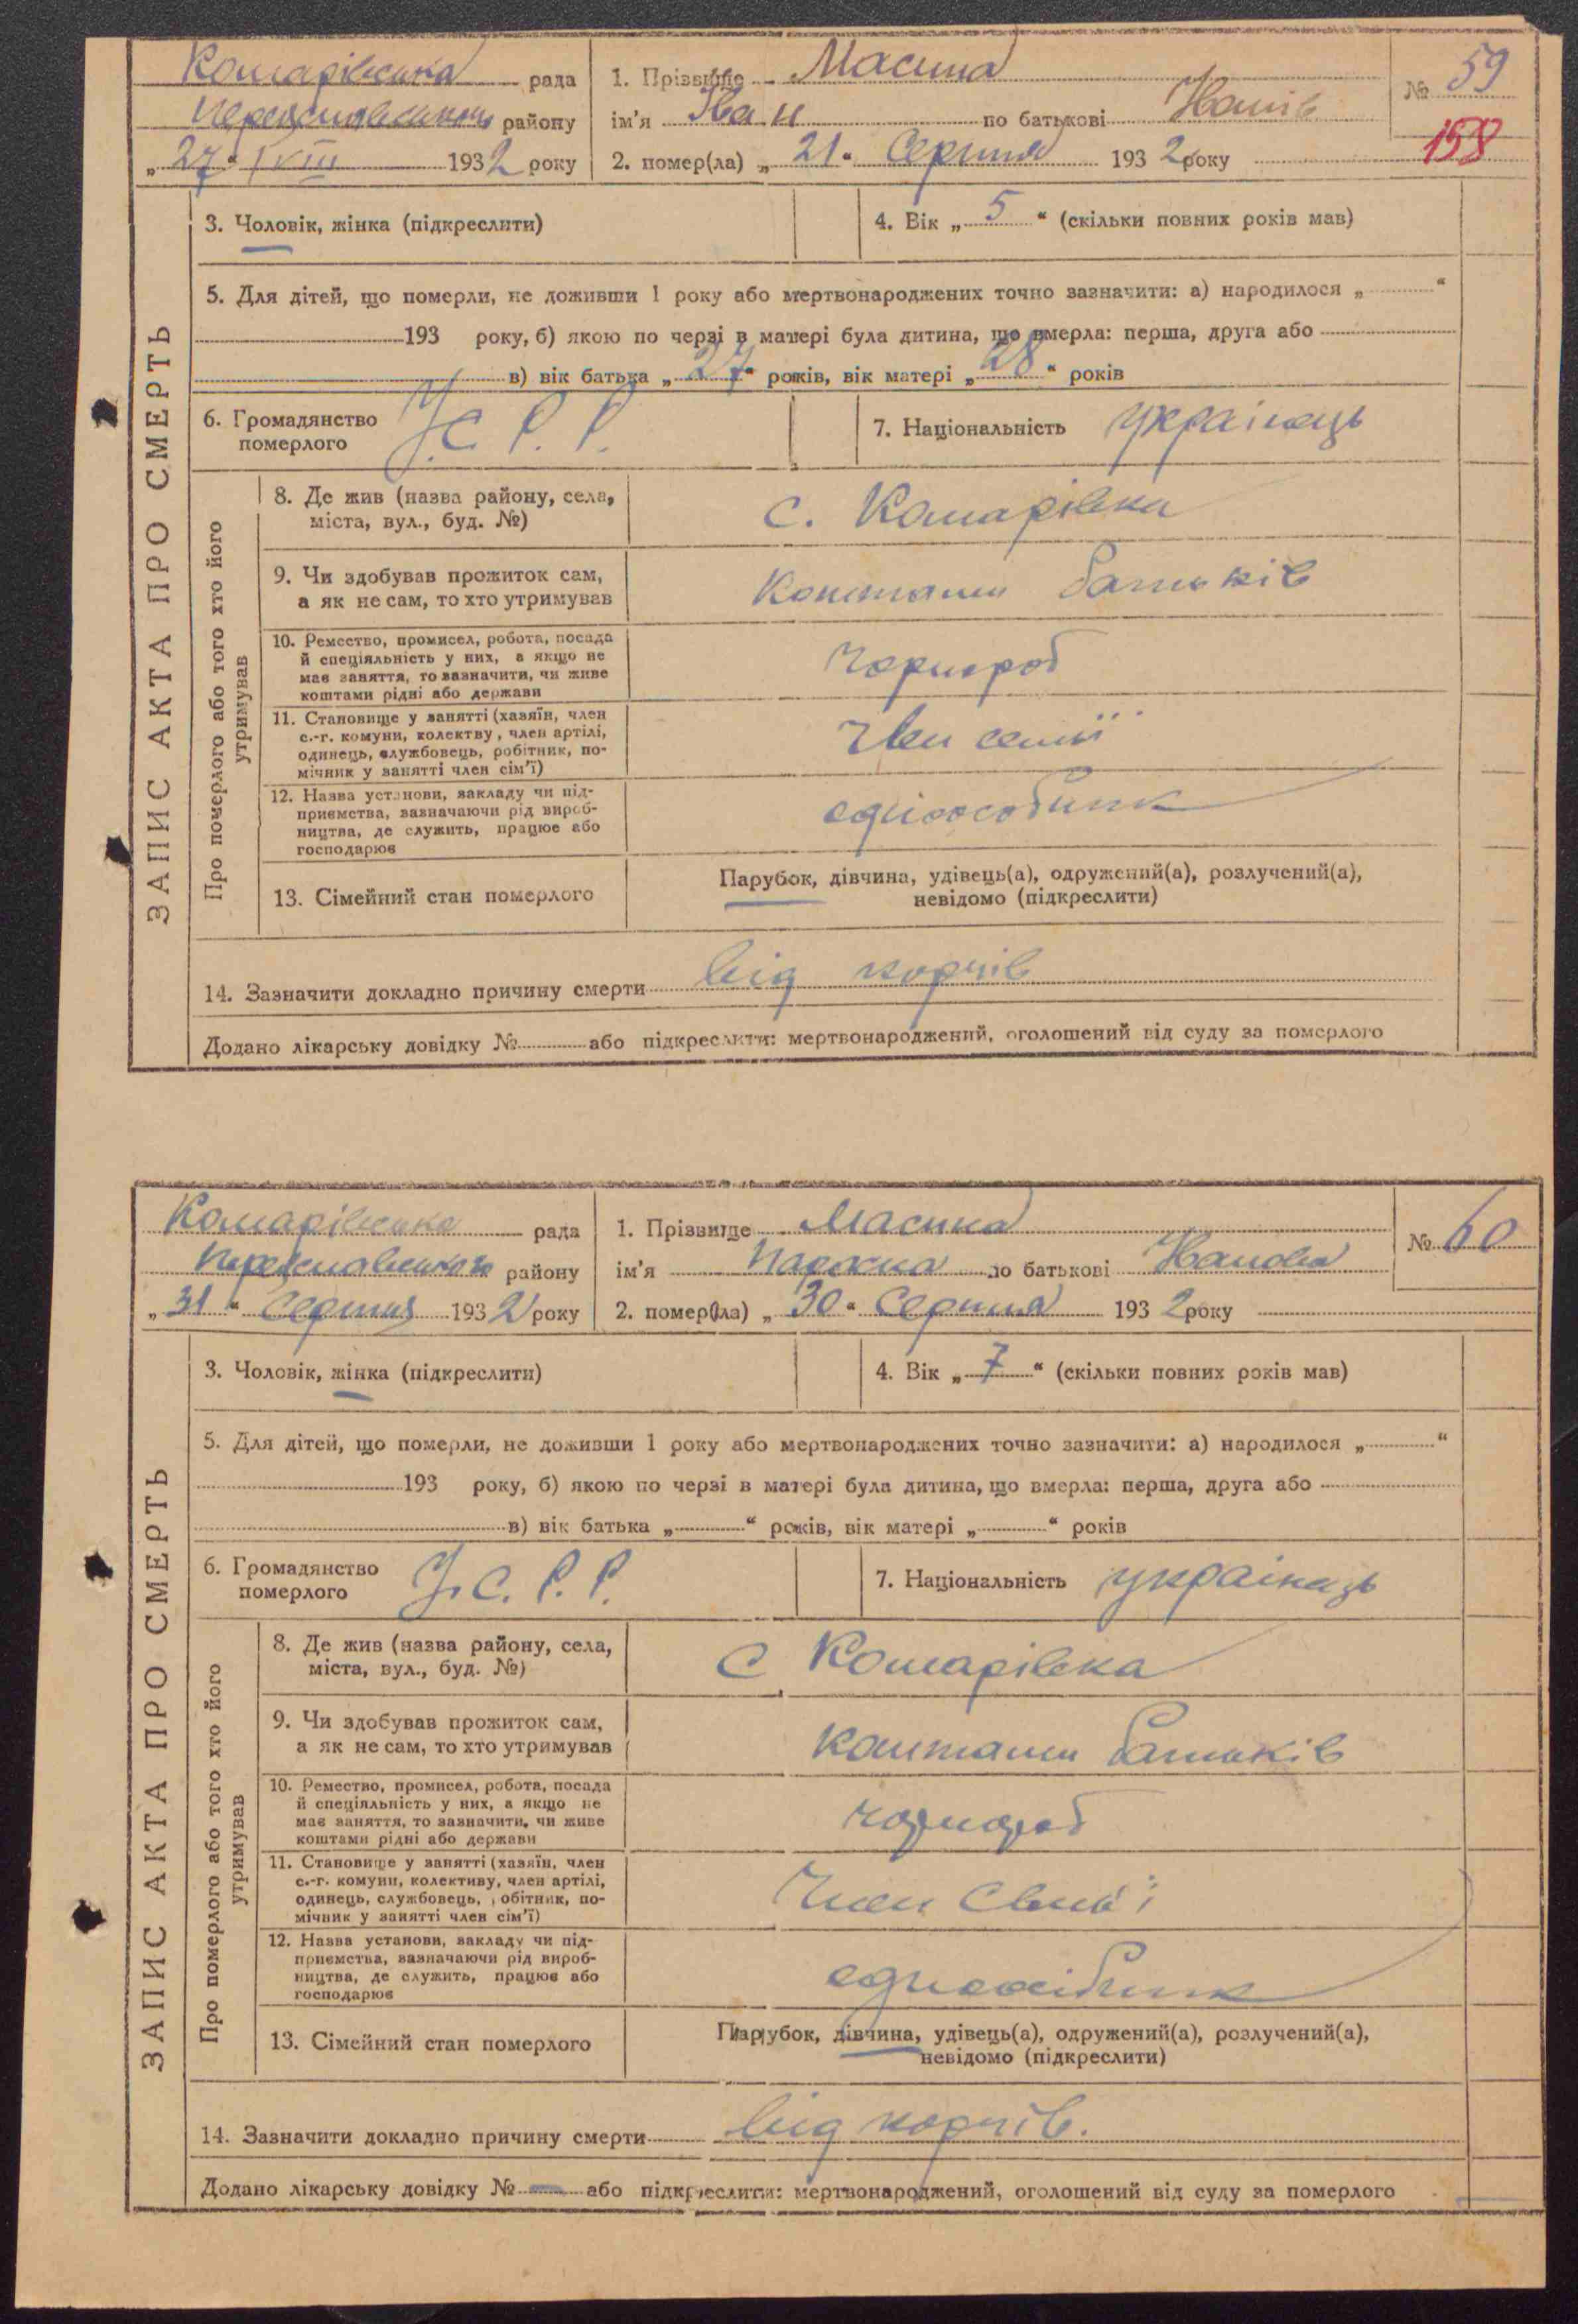 Комарівська рада
Переяславського району
„27“ VIII 1932 року
1. Прізвище Масина
ім'я Іван по батькові Йонів
2. помер(ла) „21“ Серпня 1932 року
№ 59
158
ЗАПИС АКТА ПРО СМЕРТЬ
3. Чоловік, жінка (підкреслити)
4. Вік „5“ (скільки повних років мав)
5. Для дітей, що померли, не доживши 1 року або мертвонароджених точно зазначити: а) народилося „ “
193 року, б) якою по черзі в матері була дитина, що вмерла: перша, друга або
в) вік батька „27“ років, вік матері „28“ років
6. Громадянство
померлого
У.С.Р.Р.
7. Національність українець
Про померлого або того хто його
утримував
8. Де жив (назва району, села,
міста, вул., буд. №)
с. Комарівка
9. Чи здобував прожиток сам,
а як не сам, то хто утримував
Коштами батьків
10. Ремество, промисел, робота, посада
й спеціяльність у них, а якщо не
має заняття, то зазначити, чи живе
коштами рідні або держави
Чорнороб
11. Становище у занятті (хазяїн, член
с.-г. комуни, колективу, член артілі,
одинець, службовець, робітник, по-
мічник у занятті член сім'ї)
Член семьї
12. Назва установи, закладу чи під-
приємства, зазначаючи рід вироб-
ництва, де служить, працює або
господарює
едноособник
13. Сімейний стан померлого
Парубок, дівчина, удівець(а), одружений(а), розлучений(а),
невідомо (підкреслити)
14. Зазначити докладно причину смерти від корчів
Додано лікарську довідку № або підкреслити: мертвонароджений, оголошений від суду за померлого
Комарівська рада
Переяславського району
„31“ Серпня 1932 року
1. Прізвище Масина
ім'я Параска по батькові Йонова
2. помер(ла) „30“ Серпня 1932 року
№ 60
ЗАПИС АКТА ПРО СМЕРТЬ
3. Чоловік, жінка (підкреслити)
4. Вік „7“ (скільки повних років мав)
5. Для дітей, що померли, не доживши 1 року або мертвонароджених точно зазначити: а) народилося „ “
193 року, б) якою по черзі в матері була дитина, що вмерла: перша, друга або
в) вік батька „ “ років, вік матері „ “ років
6. Громадянство
померлого
У.С.Р.Р.
7. Національність українець
Про померлого або того хто його
утримував
8. Де жив (назва району, села,
міста, вул., буд. №)
С Комарівка
9. Чи здобував прожиток сам,
а як не сам, то хто утримував
коштами батьків
10. Ремество, промисел, робота, посада
й спеціяльність у них, а якщо не
має заняття, то зазначити, чи живе
коштами рідні або держави
чорнороб
11. Становище у занятті (хазяїн, член
с.-г. комуни, колективу, член артілі,
одинець, службовець, робітник, по-
мічник у занятті член сім'ї)
Член
12. Назва установи, закладу чи під-
приємства, зазначаючи рід вироб-
ництва, де служить, працює або
господарює
едноосібник
13. Сімейний стан померлого
Парубок, дівчина, удівець(а), одружений(а), розлучений(а),
невідомо (підкреслити)
14. Зазначити докладно причину смерти від корчів.
Додано лікарську довідку № або підкреслити: мертвонароджений, оголошений від суду за померлого